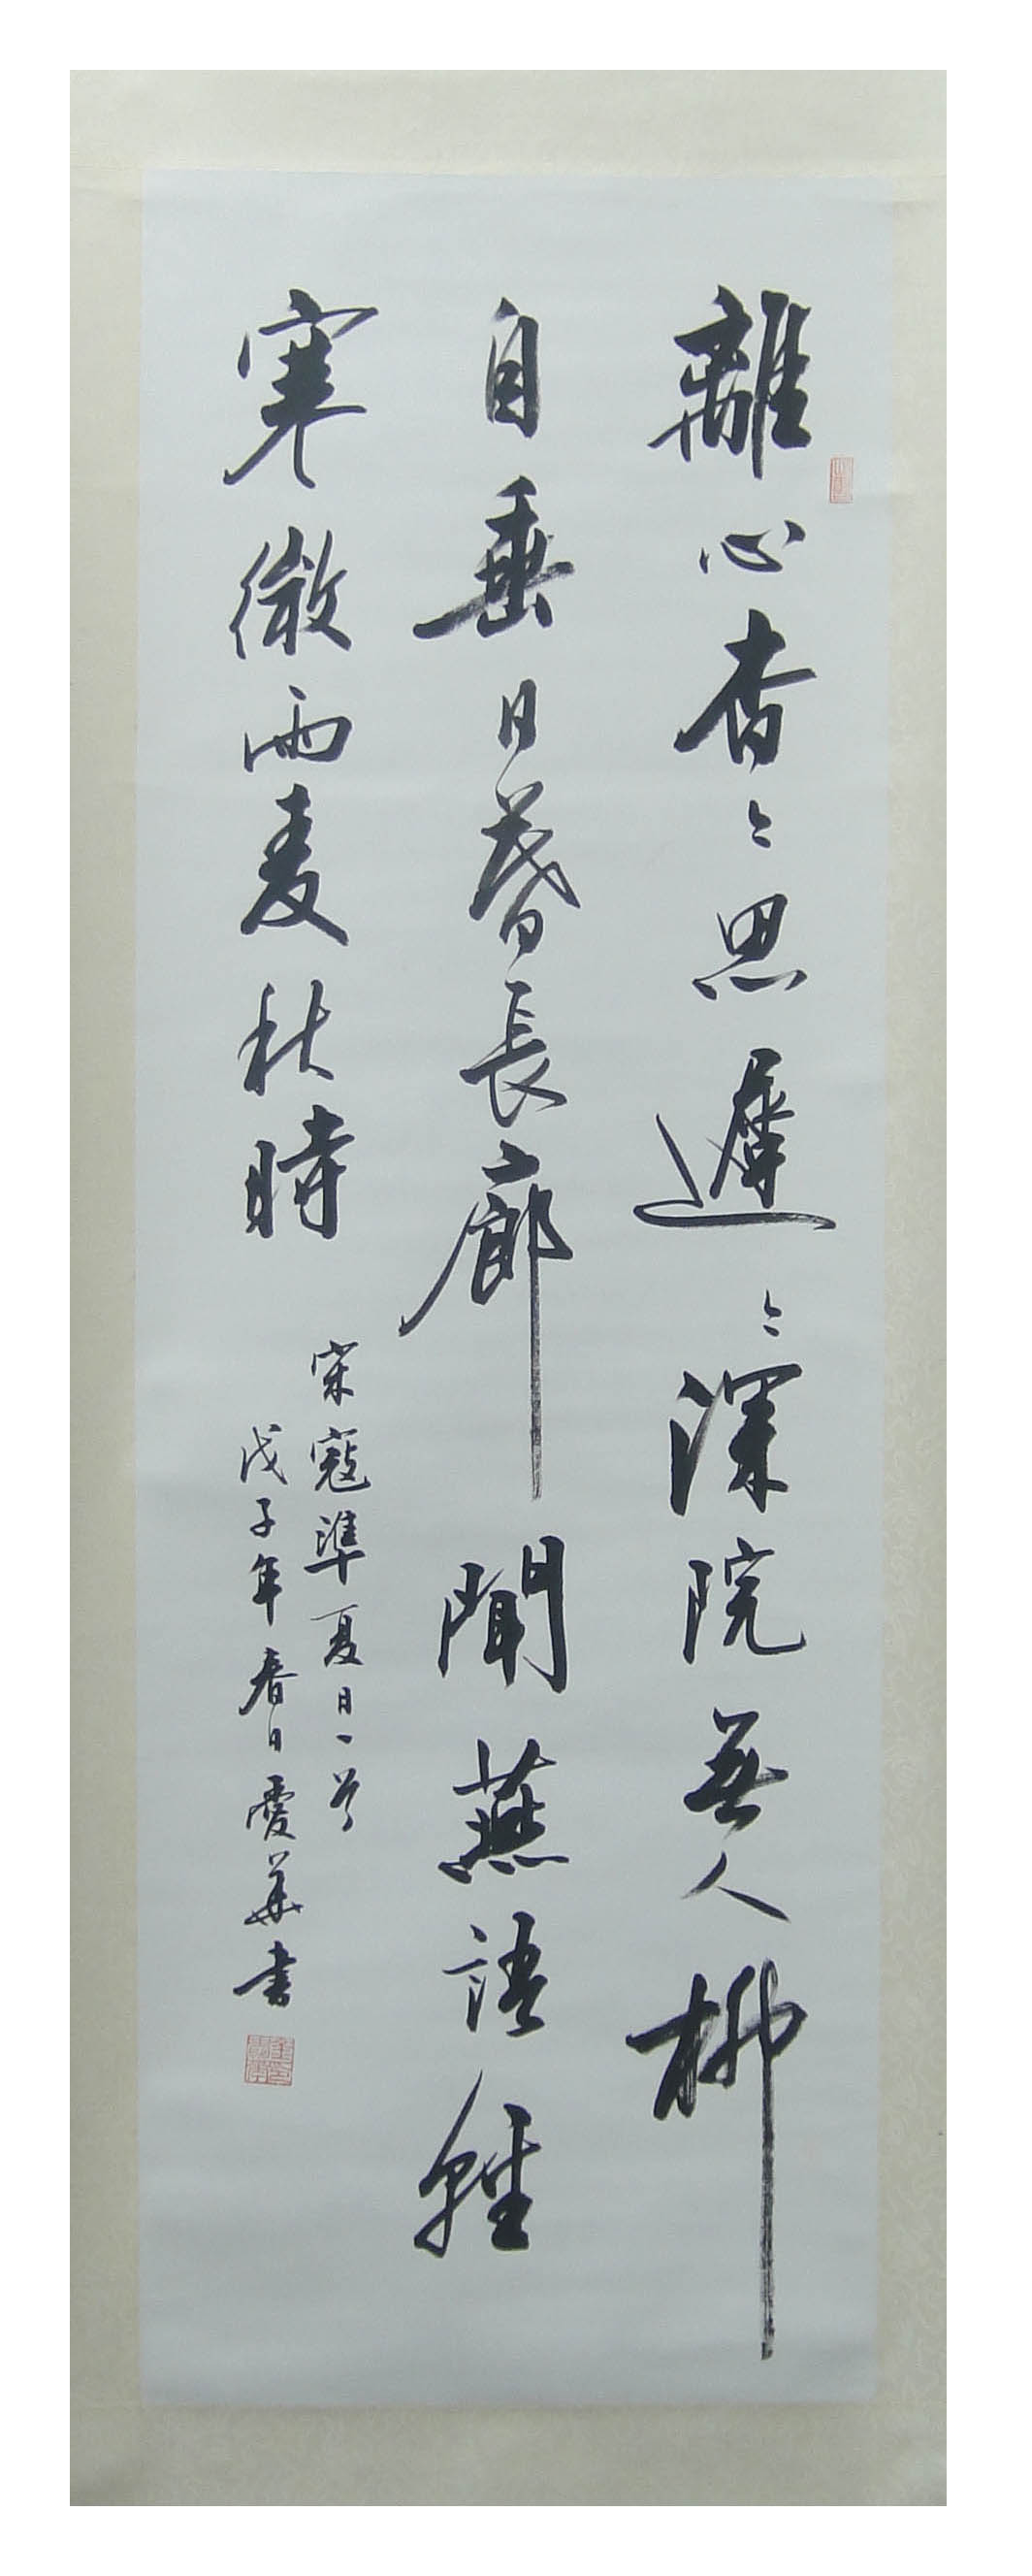 離心杳〻思遲〻深院無人柳
自垂日暮長廊聞燕語輕
寒微雨麦秋時
宋寇準夏日一首
戊子年春日愛華書